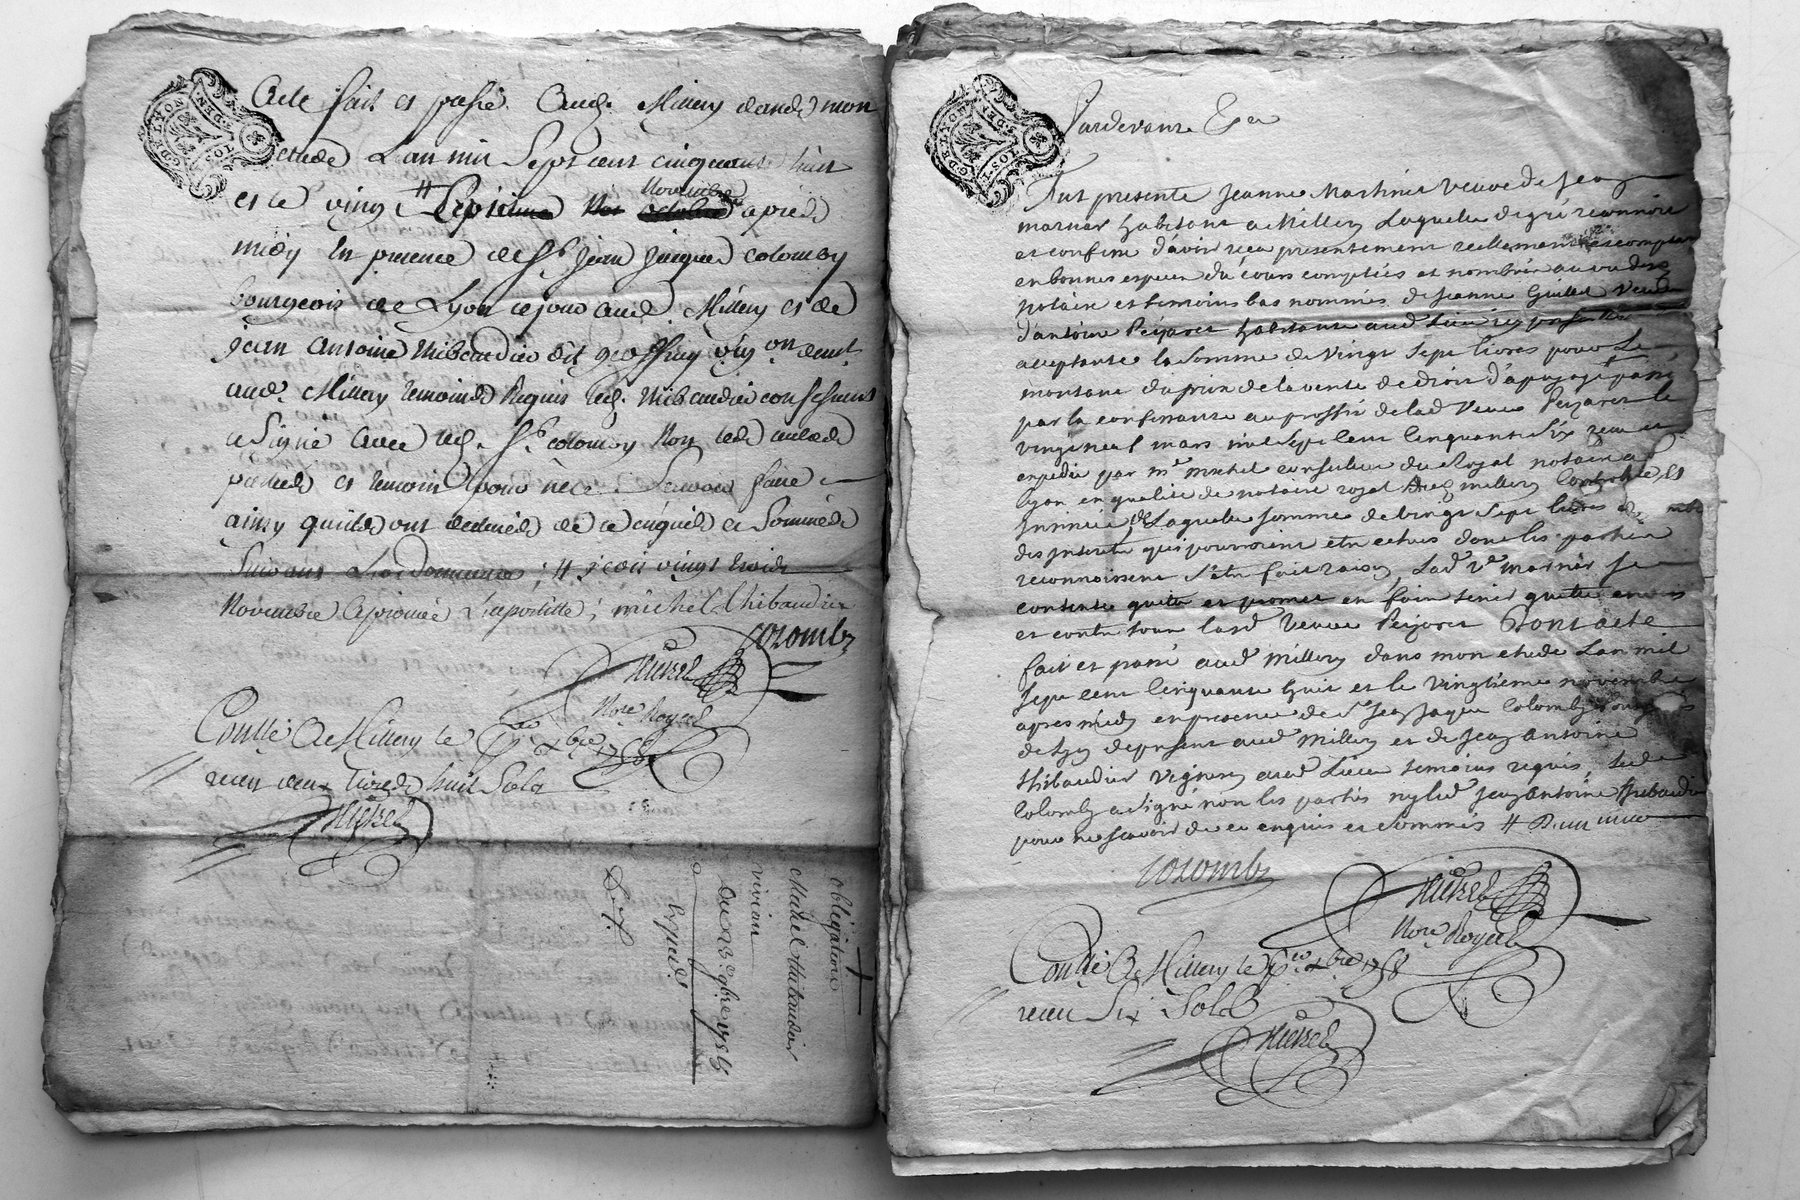 Acte fait et passé Aud. Millery dans mon
etude L'an mil Sept cent cinquante huit
et le vingt Septieme Novembre apres
midy En presence de Sr. Jean Jacques colomby
bourgeois de Lyon Millery et de
jean Antoine thibaudier dit geoffray
aud. Millery temoins Requis led. thibaudier
a Signé avec led. Sr. colomby Non
et temoin pour ne Scavoir faire
ainsy quils ont declarés de ce enquis et Sommés
Suivant L'ordonnance
Novembre L'apostille michel thibaudier
colomby
Michel
Nore. Royal
Conllé A Millery le Xbre 1758
receu deux livres huit Sols
Michel
obligation
Michel thibaudier
vivian
Du 23e. 9bre 1758
Exped.
Pardevant
Fut presente Jeanne Martinier veuve de Jean
marnas habitant a Millery Laquelle de gré reconnoit
et confesse d'avoir receu presentement reellement et comptant
en bonnes especes du cours comptées et nombrées au vu des
notaire et temoins bas nommés de Jeanne Grillet Veuve
d'antoine habitante aud. Lieu icy presente
acceptante la Somme de vingt Sept livres pour Le
montant du prix de la vente de droit passé
par la confessante au proffit de lad. Veuve le
vingt neuf mars mil Sept Cent Cinquante Six receu et
expedié par Me. Michel conseiller du Roy notaire a
Lyon en qualité de notaire royal Millery Controllé et
Insinué de Laquelle Somme de vingt Sept livres
des Interets qui pourroient etre echus dont les parties
reconnoissent S'etre fait raison Lad. Ve. marnas Se
contente quitte et promet en faire tenir quitte envers
et contre tous lad. Veuve Dont acte
fait et passé aud. Millery dans mon etude L'an mil
Sept Cent Cinquante huit et le vingtieme novembre
apres midy en presence de Sr. Jean Jaque Colomby Bourgeois
de Lyon de present aud. Millery et de Jean Antoine
thibaudier Vigneron aud. Lieu temoins requis led.
Colomby a Signé non les parties ny led. Jean Antoine thibaudier
pour ne Scavoir de ce enquis et Sommés
colomby
Michel
Nore. Royal
Conllé A Millery le Xbre 1758
receu Six Sols
Michel